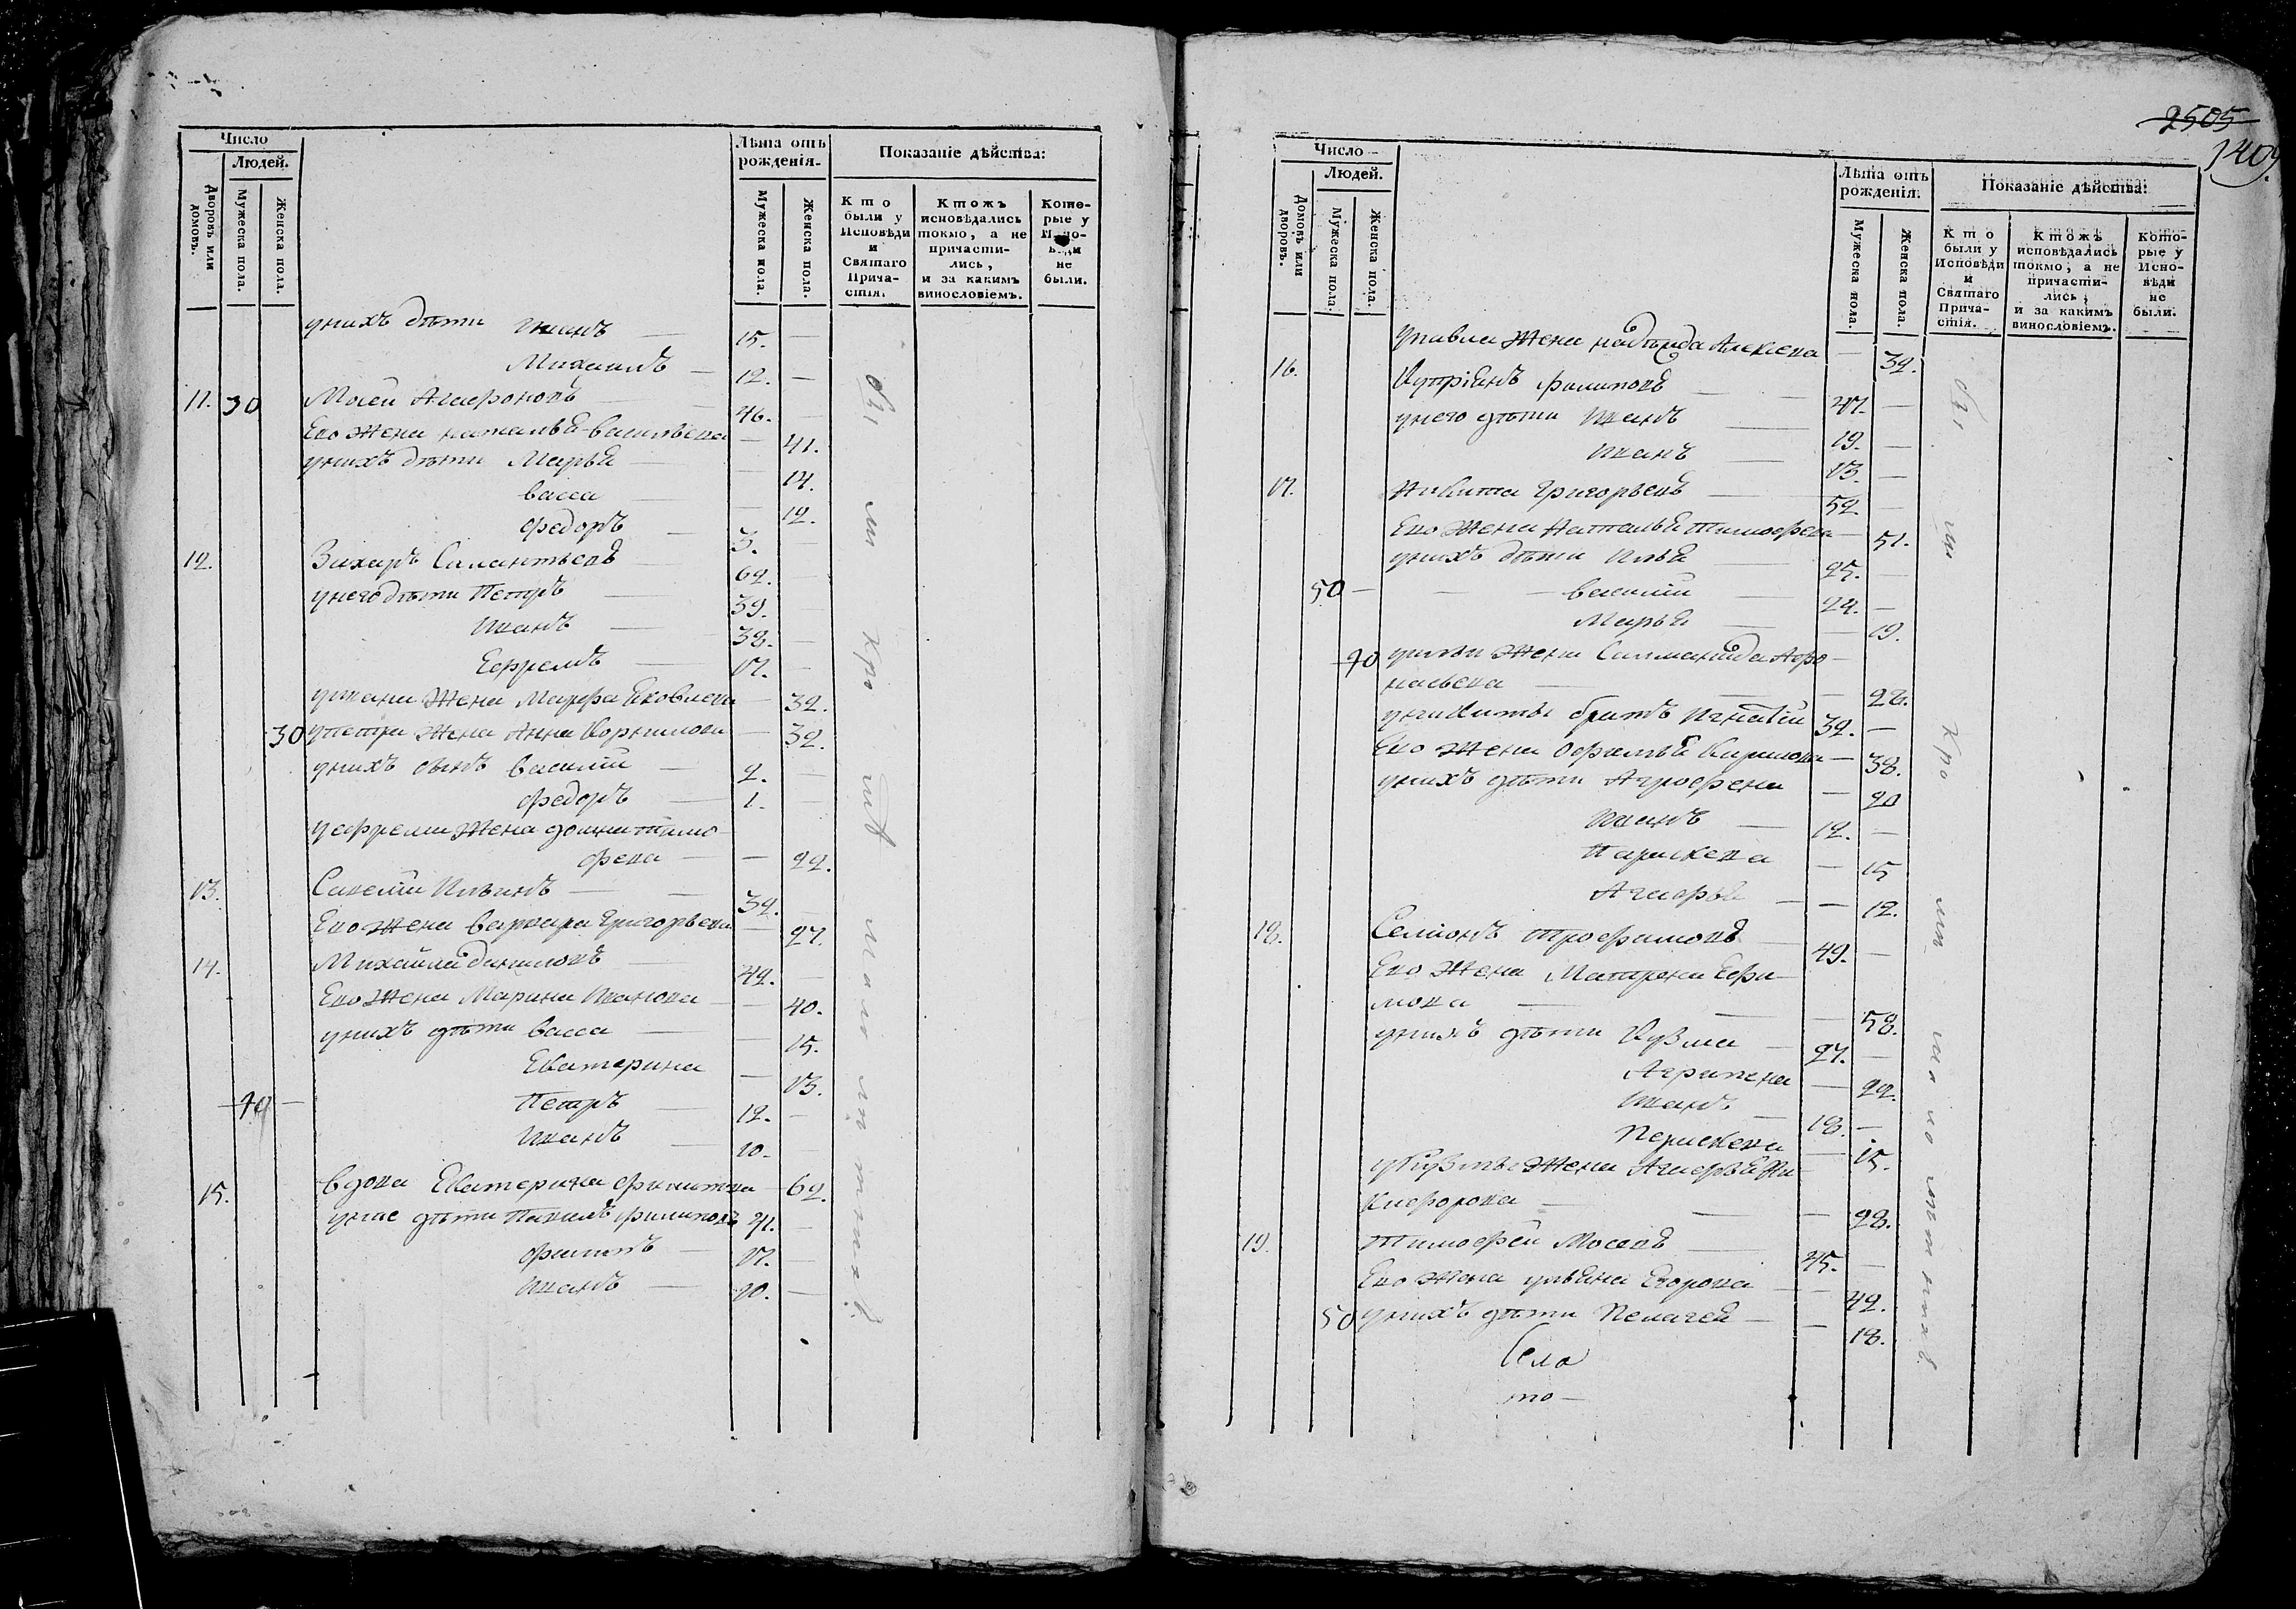 Число
Людей.
Лѣта отъ рожденія.
Показаніе дѣйства:
Дворовъ или домовъ.
Мужеска пола.
Женска пола.
Мужеска пола.
Женска пола.
Кто были у Исповѣди и Святаго Причастія.
Ктожъ исповѣдались токмо, а не причастились, и за какимъ винословіемъ.
Которые у Исповѣди не были.
у нихъ дѣти Иванъ — 15. —
Михаилъ — 12. —
11. 30 Мосей Агафоновъ — 46. —
Ево жена наталья васильевна — 41.
у нихъ дѣти Марья — 14.
васса — 12.
Федоръ — 3. —
12. Захаръ — 62. —
у него дѣти Петръ — 39. —
Иванъ — 38. —
Ефремъ — 17. —
у ивана жена Марфа Яковлева — 32.
30 у петра жена Анна Корнилова — 32.
у нихъ сынъ василий — 2. —
Федоръ — 1. —
у ефрема жена домна тимо
феева — 22.
13. Савелий Ильинъ — 32. —
Ево жена варвара Григорьевна — 27.
14. Михайла даниловъ — 42. —
Ево жена Марина Иванова — 40.
у нихъ дѣти васса — 15.
Екатерина — 13.
40 — Петръ — 12. —
Иванъ — 10.
15. вдова Екатерина — 62.
у нее дѣти Павелъ филиповъ 41. —
филипъ 17. —
Иванъ — 10. —
2505
1409.
Число
Людей.
Лѣта отъ рожденія.
Показаніе дѣйства:
Домовъ или дворовъ.
Мужеска пола
Женска пола.
Мужеска пола.
Женска пола.
Кто были у Исповѣди и Святаго Причастія.
Ктожъ исповѣдались токмо, а не причастились, и за какимъ винословіемъ.
Которые у Исповѣди не были.
у павла жена надежда Алексева — 32.
16. Купріянъ филиповъ — 47. —
у него дѣти Иванъ — 19. —
Иванъ — 13. —
17. Никита Григорьевъ — 52 —
Ево жена Наталья тимофеева — 51.
у нихъ дѣти Илья — 25. —
50 — василий — 24. —
Марья — 19.
40 у ильи жена Саламанида Афо
насьева — 26.
у никиты братъ Игнатій 39. —
Ево жена Кирилова — 38.
у нихъ дѣти Аграфена — 20
Иванъ — 12. —
Парасковья — 15
Агафья — 12.
18. Семіонъ трофимовъ — 49. —
Ево жена Матрена Ефи
мова — 58.
у нихъ дѣти Кузма — 27. —
Агрипена — 22.
Иванъ — 18. —
— 15.
у Кузьмы жена Агафья Ни
кифорова — 28.
19. Тимофей Мосевъ — 45. —
Ево жена ульяна Егорова — 42.
50 у нихъ дѣти Пелагея — 18.
Села
то —